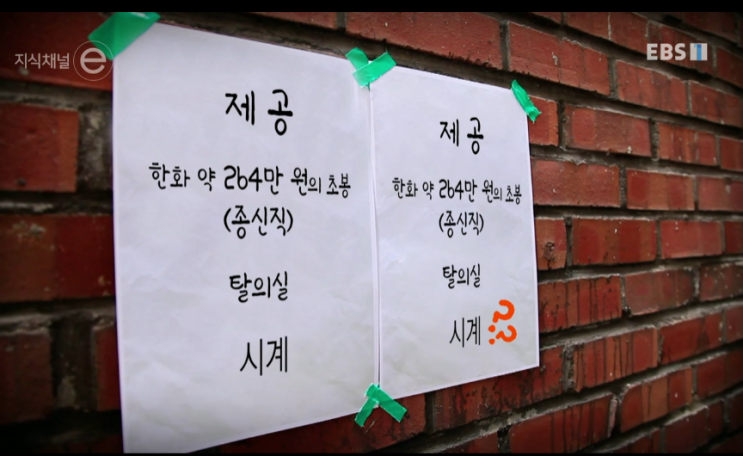 지식채널 e
EBS 1
제공
한화 약 264만 원의 초봉
(종신직)
탈의실
시계
제공
한화 약 264만 원의 초봉
(종신직)
탈의실
시계??